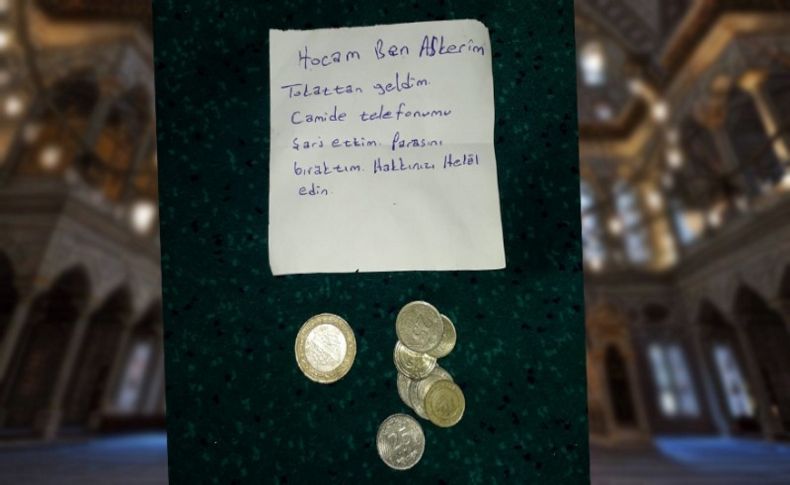 Hocam Ben Askerim
Tokattan geldim.
Camide telefonumu
Şarj ettim. Parasını
bıraktım. Hakkınızı Helâl
edin.
25